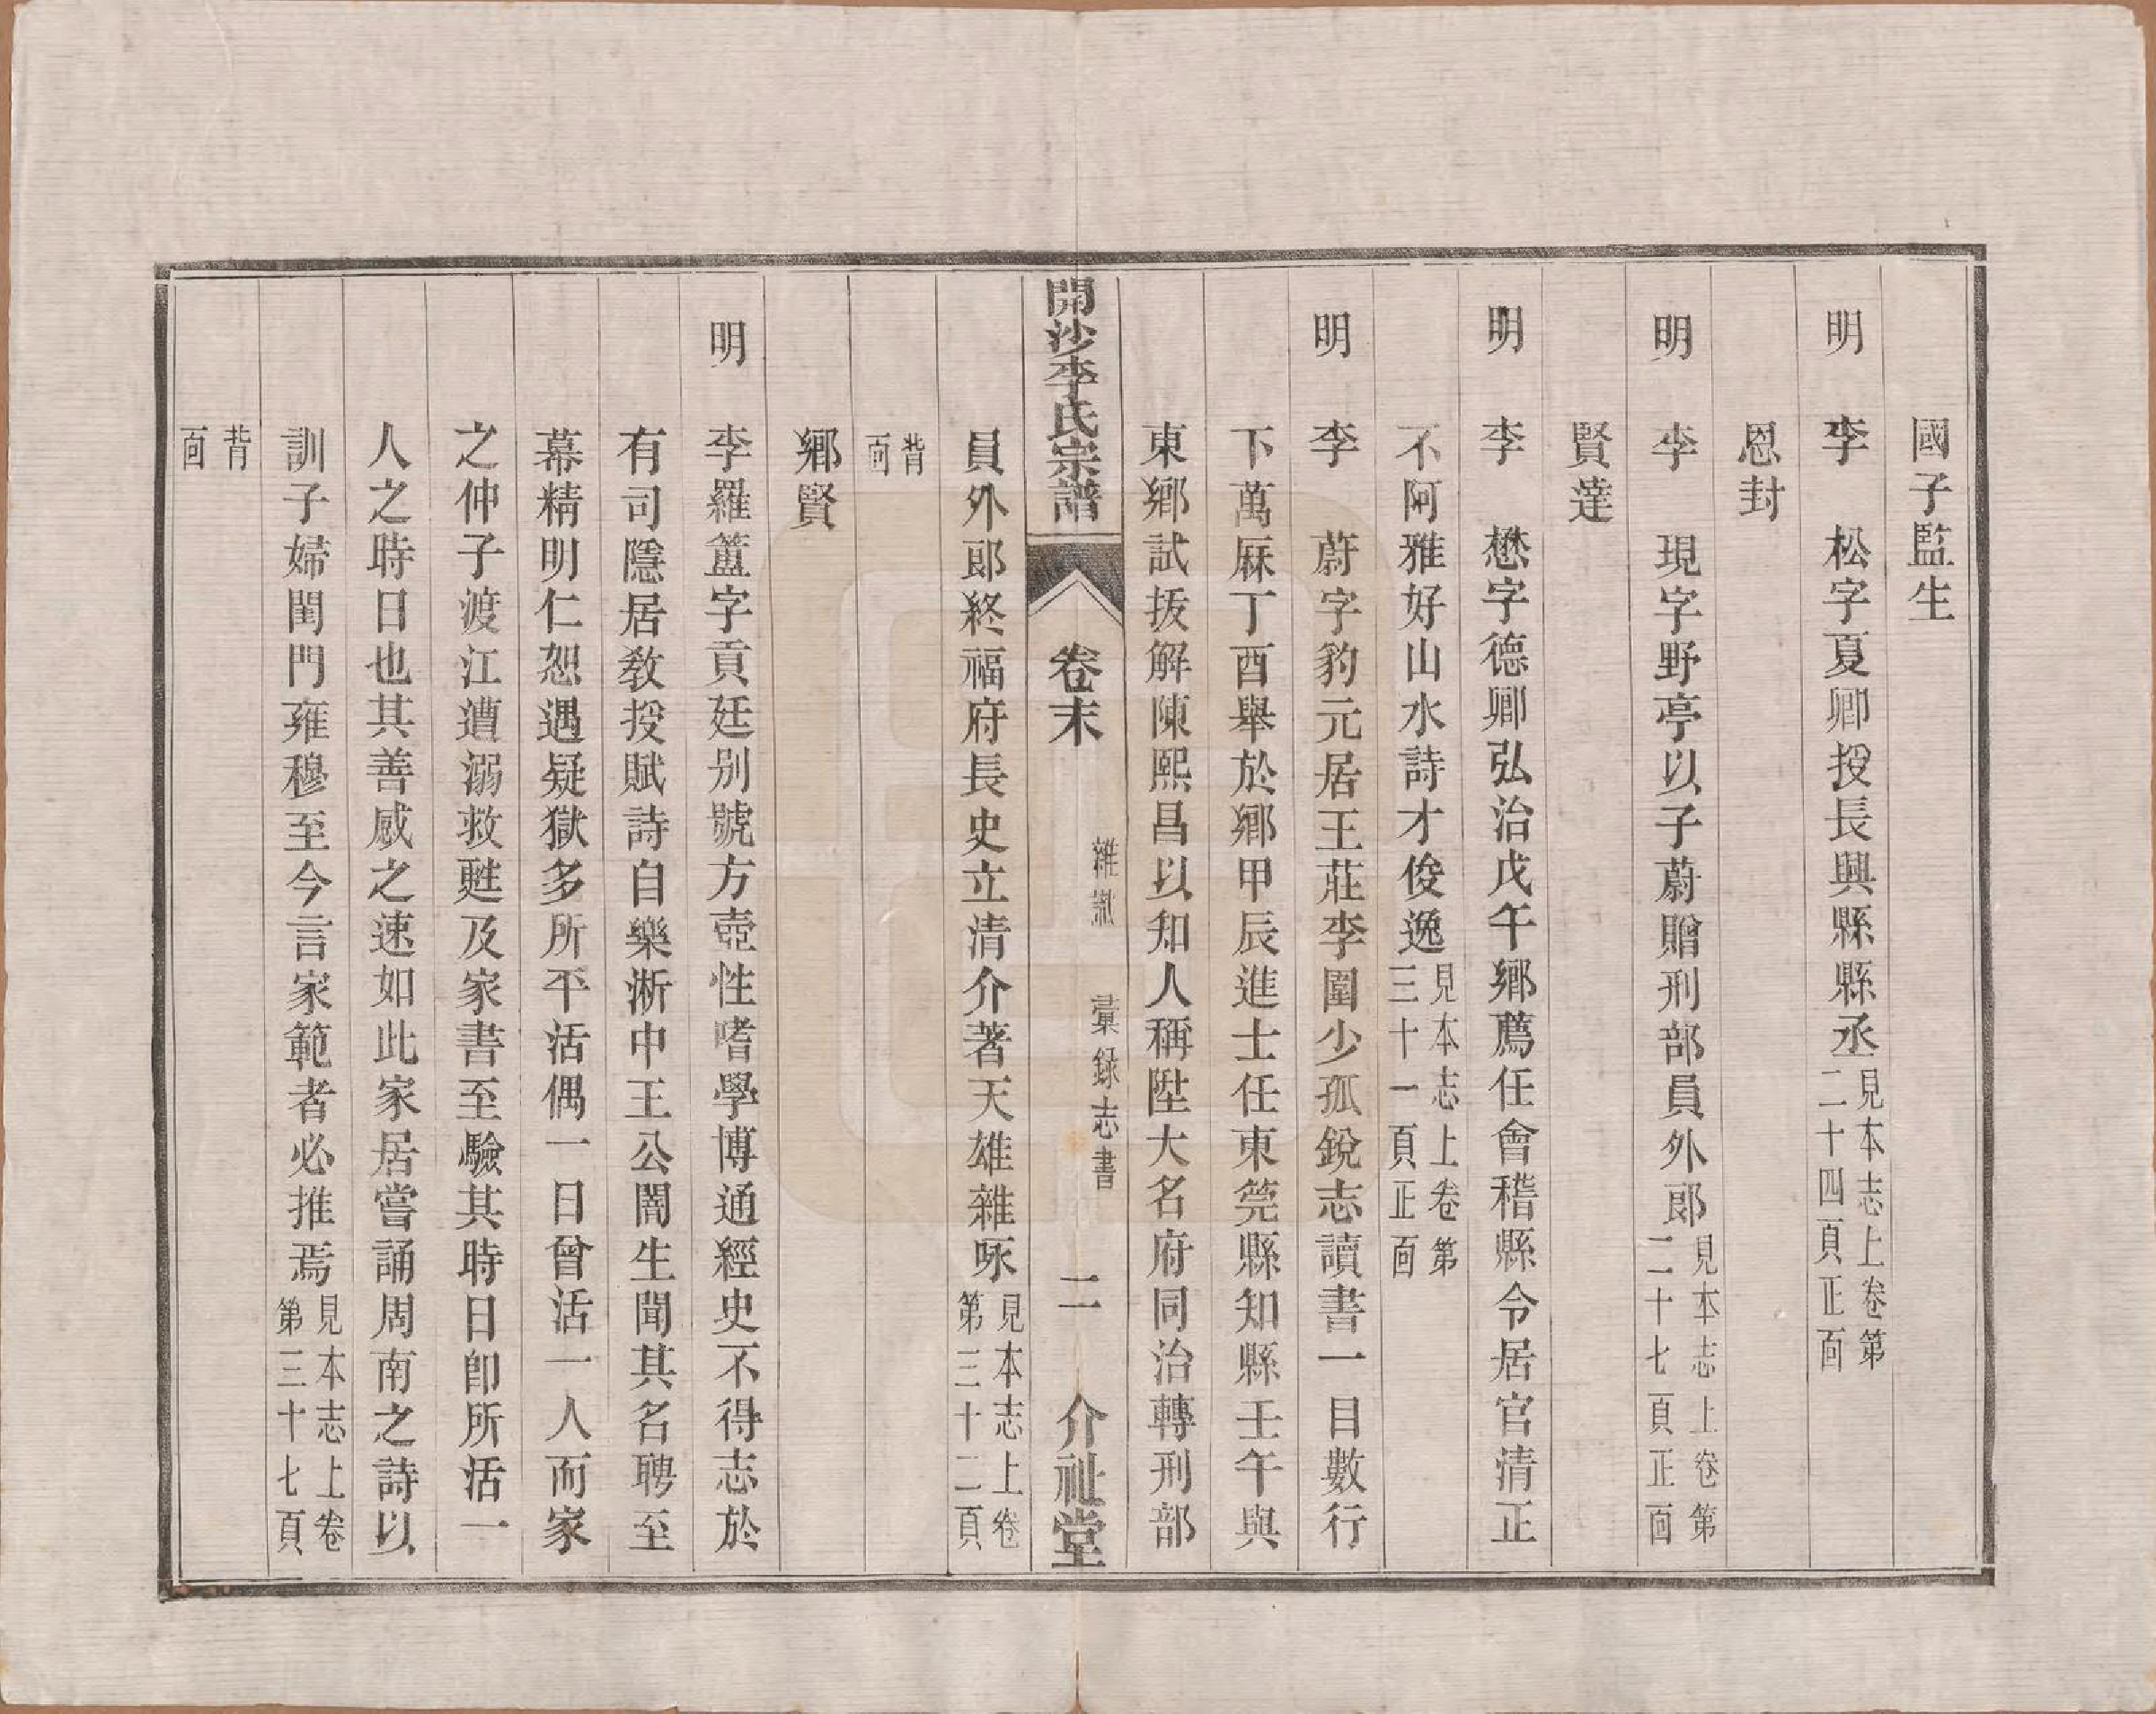 國子監生
明　李　松字夏卿授長興縣縣丞見本志上卷第二十四頁正面
恩封
明　李　現字野亭以子蔚贈刑部員外郎見本志上卷第二十七頁正面
賢達
明　李　懋字德卿弘治戊午鄉薦任會稽縣令居官清正
不阿雅好山水詩才俊逸見本志上卷第三十一頁正面
明　李　蔚字豹元居王莊李圍少孤銳志讀書一目數行
下萬厤丁酉舉於鄉甲辰進士任東莞縣知縣壬午與
東鄉試拔解陳熙昌以知人稱陞大名府同治轉刑部
開沙李氏宗譜　卷末　雜識　彙録志書　二　介祉堂
員外郎終福府長史立清介著天雄雜咏見本志上卷第三十二頁
背面
鄉賢
明　李羅簠字貢廷別號方壺性嗜學博通經史不得志於
有司隱居教授賦詩自樂淅中王公闇生聞其名聘至
幕精明仁恕遇疑獄多所平活偶一日曾活一人而家
之仲子渡江遭溺救甦及家書至驗其時日卽所活一
人之時日也其善感之速如此家居嘗誦周南之詩以
訓子婦閨門雍穆至今言家範者必推焉見本志上卷第三十七頁
背面